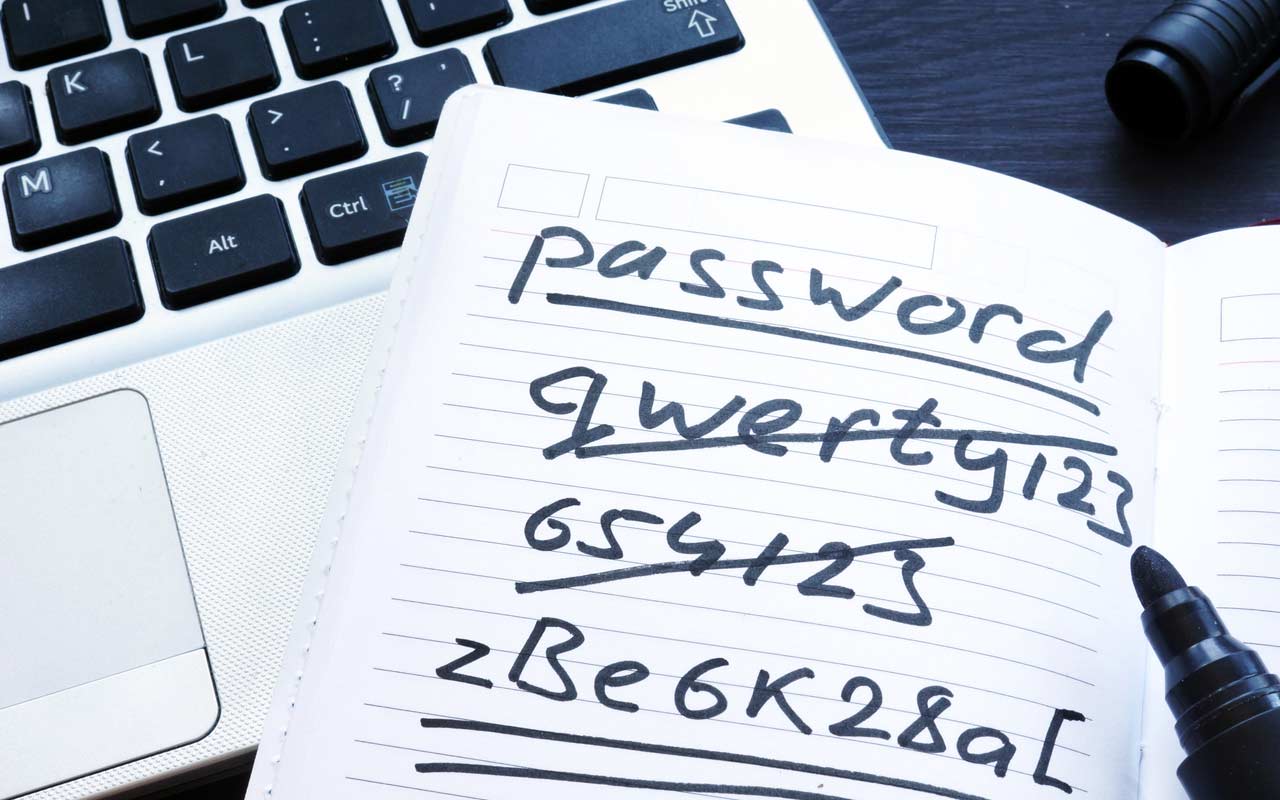 I : " Shift
K L ; ? '
< > /
M , .
Alt Ctrl
password
qwerty123
654123
zBe6K28a[